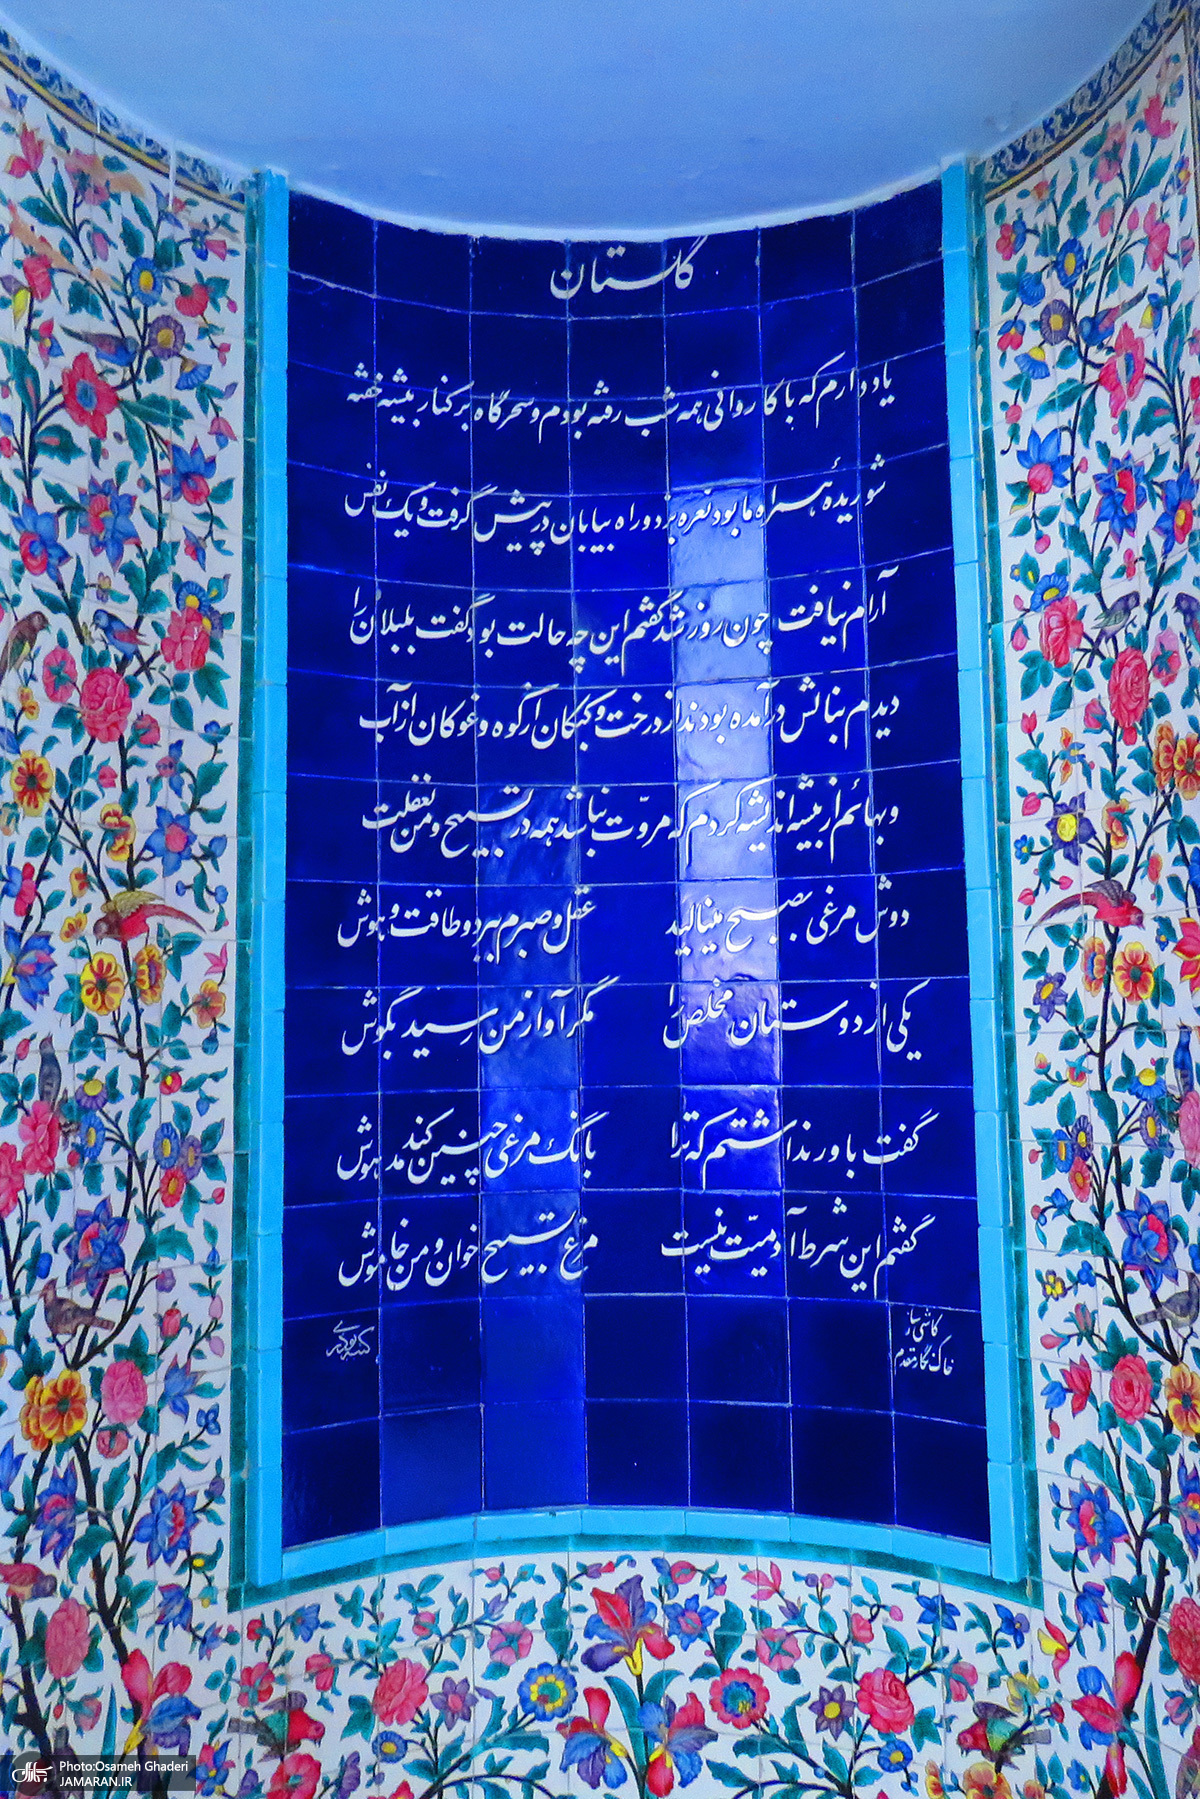 گلستان
یاد دارم که با کاروانی همه شب رفته بودم و سحرگاه بر کنار بیشه خفته
شوریدهٔ همراه ما بود نعره بزد و راه بیابان در پیش گرفت و یک نفس
آرام نیافت چون روز شد گفتم این چه حالت بود گفت بلبلان را
دیدم بنالش در آمده بودند از درخت و کبکان از کوه و غوکان از آب
و بهائم از بیشه اندیشه کردم که مروّت نباشد همه در تسبیح و من بغفلت
دوش مرغی بصبح مینالید عقل و صبرم ببرد و طاقت و هوش
یکی از دوستان مخلص را مگر آواز من رسید بگوش
گفت باور نداشتم که ترا بانگ مرغی چنین کند مدهوش
گفتم این شرط آدمیّت نیست مرغ تسبیح خوان و من خاموش
کاشی ساز
خاک نگار مقدم
Photo:Osameh Ghaderi
JAMARAN.IR